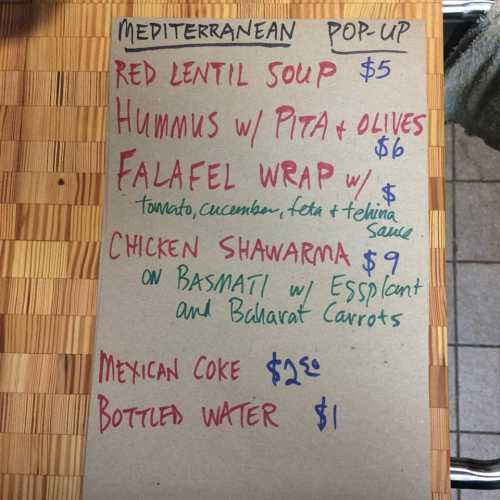 MEDITERRANEAN POP-UP
RED LENTIL SOUP $5
HUMMUS W/ PITA + OLIVES
$6
FALAFEL WRAP W/ $
tomato, cucumber, feta + tehina
sauce
CHICKEN SHAWARMA $9
ON BASMATI W/ EGGPlant
and Baharat Carrots
MEXICAN COKE $2.50
BOTTLED WATER $1